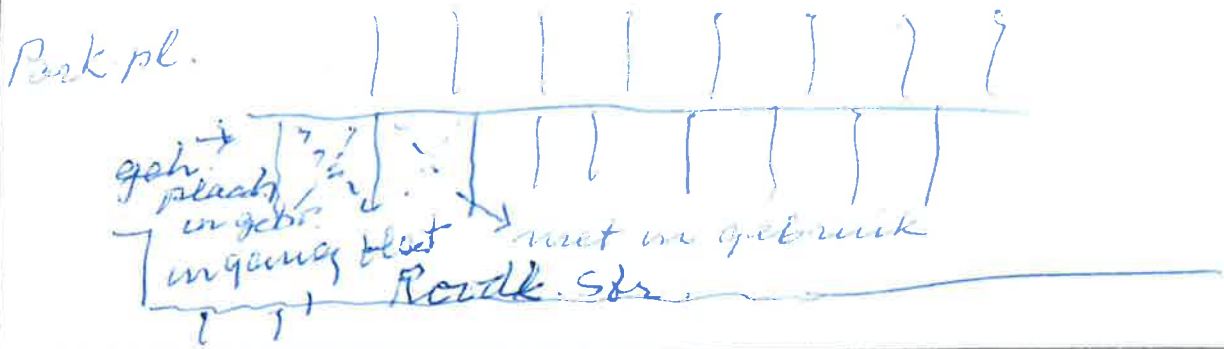 Park pl.
geh.
plaats
in gebr.
ingang flat
niet in gebruik
Str.